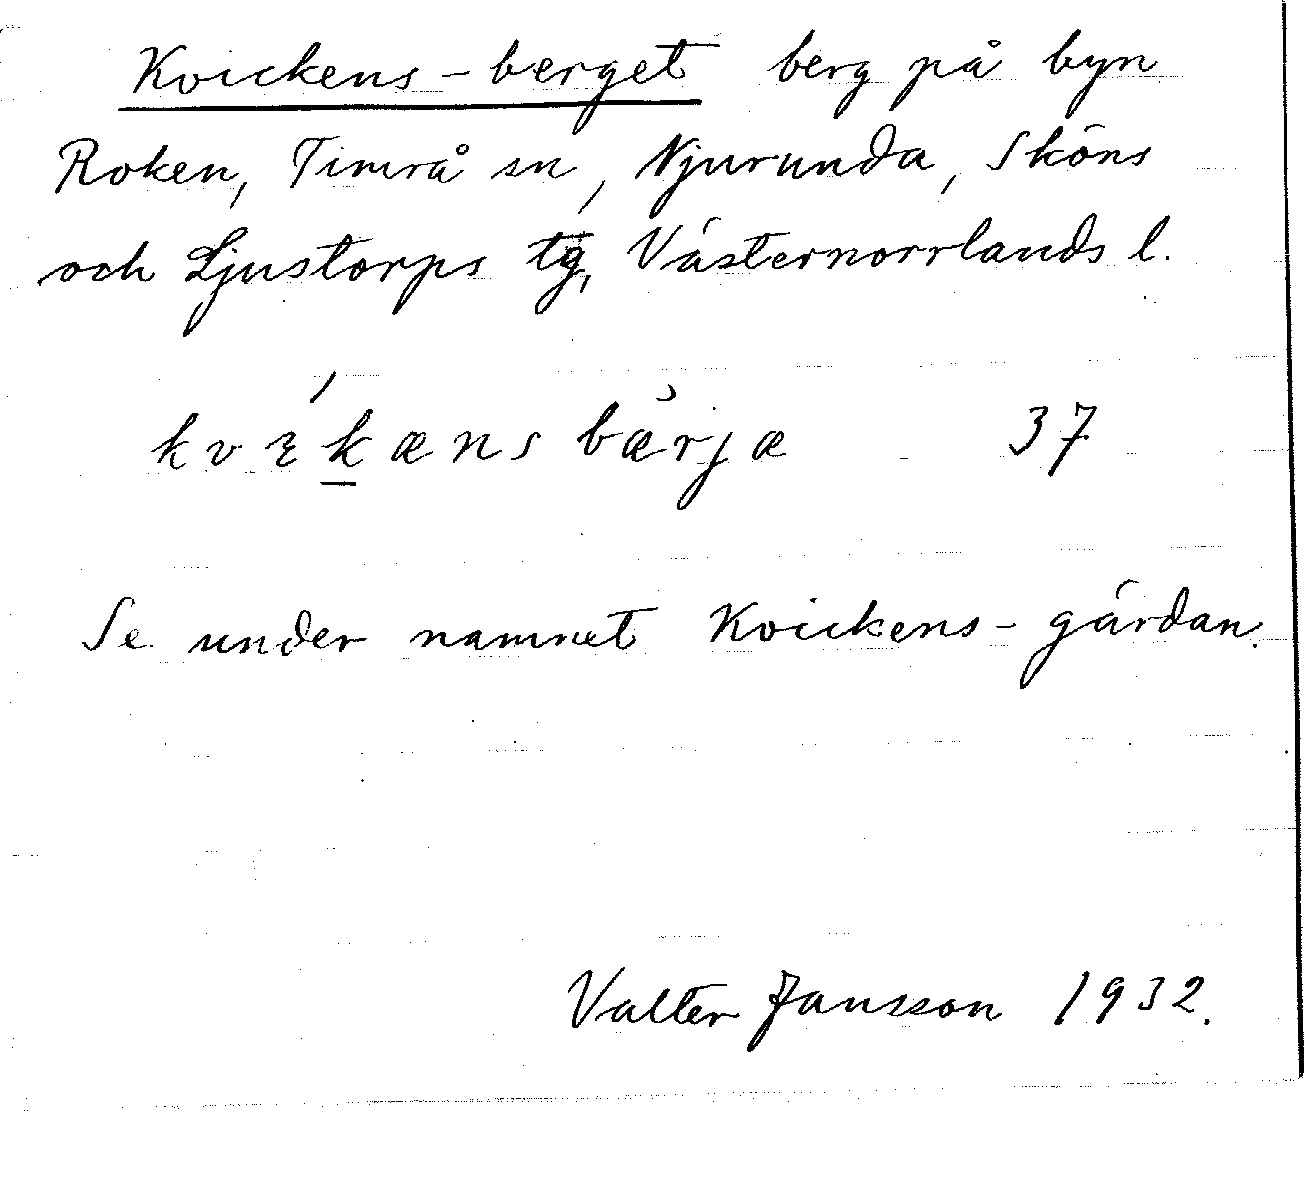 Kvickens-berget berg på byn
Roken, Timrå sn, Njurunda, Sköns
och Ljustorps tg, Västernorrlands l.
kvɪ́k̲ænsbærjæ 37
Se under namnet Kvickens-gärdan.
Valter Jansson 1932.